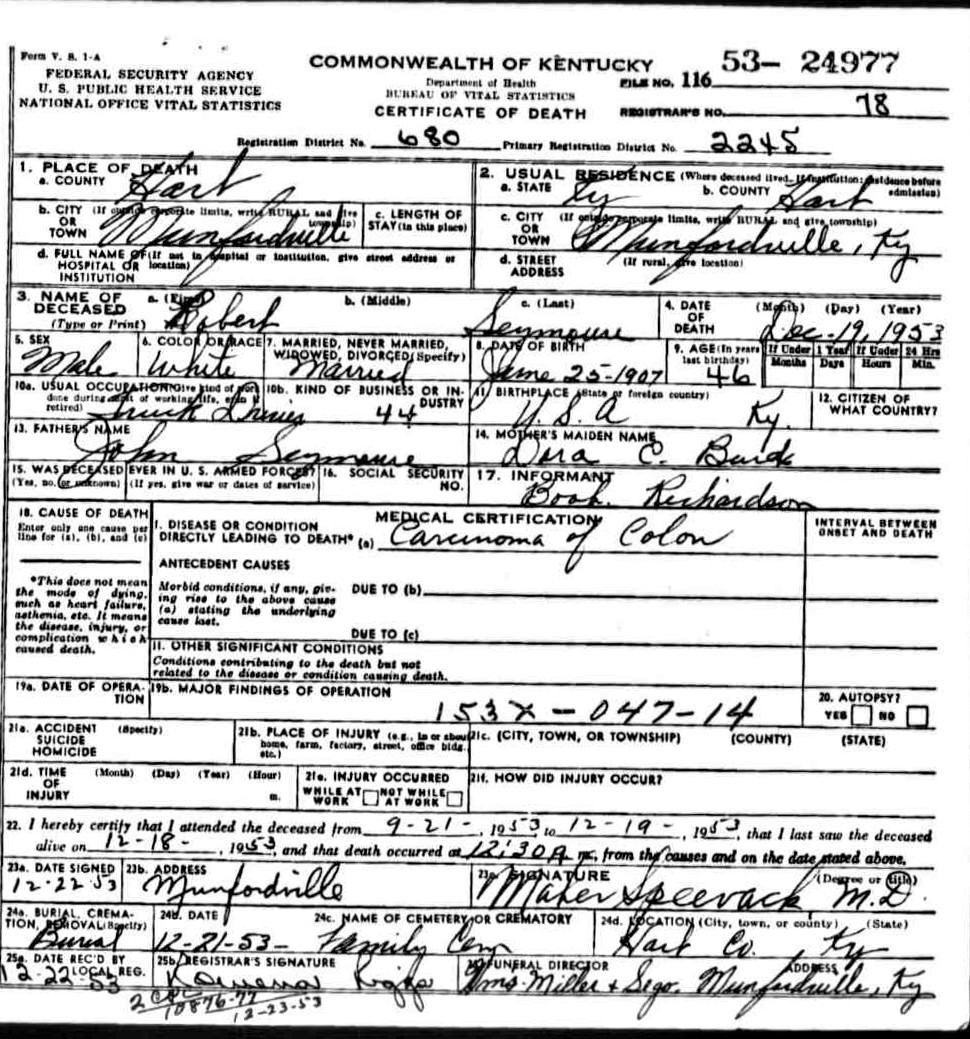 Form V. S. 1-A
FEDERAL SECURITY AGENCY
U. S. PUBLIC HEALTH SERVICE
NATIONAL OFFICE VITAL STATISTICS
COMMONWEALTH OF KENTUCKY
Department of Health
BUREAU OF VITAL STATISTICS
CERTIFICATE OF DEATH
FILE NO. 116 53- 24977
REGISTRAR'S NO. 78
Registration District No. 680 Primary Registration District No. 2245
1. PLACE OF DEATH
a. COUNTY Hart
2. USUAL RESIDENCE (Where deceased lived. If institution: residence before admission)
a. STATE Ky b. COUNTY Hart
b. CITY (If outside corporate limits, write RURAL and give township)
OR
TOWN Munfordville
c. LENGTH OF
STAY (in this place)
c. CITY (If outside corporate limits, write RURAL and give township)
OR
TOWN Munfordville, Ky
d. FULL NAME OF (If not in hospital or institution, give street address or location)
HOSPITAL OR
INSTITUTION
d. STREET (If rural, give location)
ADDRESS
3. NAME OF DECEASED a. (First) b. (Middle) c. (Last)
(Type or Print) Robert Seymoure
4. DATE OF DEATH (Month) (Day) (Year)
Dec-19, 1953
5. SEX
Male
6. COLOR OR RACE
White
7. MARRIED, NEVER MARRIED,
WIDOWED, DIVORCED (Specify)
Married
8. DATE OF BIRTH
June 25-1907
9. AGE (In years last birthday) 46
If Under 1 Year If Under 24 Hrs
Months Days Hours Min.
10a. USUAL OCCUPATION (Give kind of work done during most of working life, even if retired)
Truck Driver
10b. KIND OF BUSINESS OR INDUSTRY
44
11. BIRTHPLACE (State or foreign country)
U.S.A Ky.
12. CITIZEN OF
WHAT COUNTRY?
13. FATHER'S NAME
John Seymoure
14. MOTHER'S MAIDEN NAME
Dora C.
15. WAS DECEASED EVER IN U. S. ARMED FORCES?
(Yes, no, or unknown) (If yes, give war or dates of service)
16. SOCIAL SECURITY
NO.
17. INFORMANT
Richardson
18. CAUSE OF DEATH
Enter only one cause per
line for (a), (b), and (c)
*This does not mean
the mode of dying,
such as heart failure,
asthenia, etc. It means
the disease, injury, or
complication which
caused death.
MEDICAL CERTIFICATION
I. DISEASE OR CONDITION
DIRECTLY LEADING TO DEATH* (a) Carcinoma of Colon
INTERVAL BETWEEN
ONSET AND DEATH
ANTECEDENT CAUSES
Morbid conditions, if any, giving rise to the above cause (a) stating the underlying cause last.
DUE TO (b)
DUE TO (c)
II. OTHER SIGNIFICANT CONDITIONS
Conditions contributing to the death but not
related to the disease or condition causing death.
19a. DATE OF OPERATION
19b. MAJOR FINDINGS OF OPERATION
153X-047-14
20. AUTOPSY?
YES NO
21a. ACCIDENT (Specify)
SUICIDE
HOMICIDE
21b. PLACE OF INJURY (e.g., in or about home, farm, factory, street, office bldg. etc.)
21c. (CITY, TOWN, OR TOWNSHIP) (COUNTY) (STATE)
21d. TIME (Month) (Day) (Year) (Hour)
OF
INJURY m.
21e. INJURY OCCURRED
WHILE AT WORK NOT WHILE AT WORK
21f. HOW DID INJURY OCCUR?
22. I hereby certify that I attended the deceased from 9-21-, 1953 to 12-19-, 1953, that I last saw the deceased
alive on 12-18-, 1953, and that death occurred at 12:30 a m., from the causes and on the date stated above.
23a. DATE SIGNED
12-22-53
23b. ADDRESS
Munfordville
23c. SIGNATURE (Degree or title)
Maher Speevack M.D.
24a. BURIAL, CREMATION, REMOVAL (Specify)
Burial
24b. DATE
12-21-53-
24c. NAME OF CEMETERY OR CREMATORY
Family Cem
24d. LOCATION (City, town, or county) (State)
Hart Co. Ky
25a. DATE REC'D BY
LOCAL REG.
12-22-53
25b. REGISTRAR'S SIGNATURE
26. FUNERAL DIRECTOR ADDRESS
Miller & Sego. Munfordville, Ky
10876-77
12-23-53